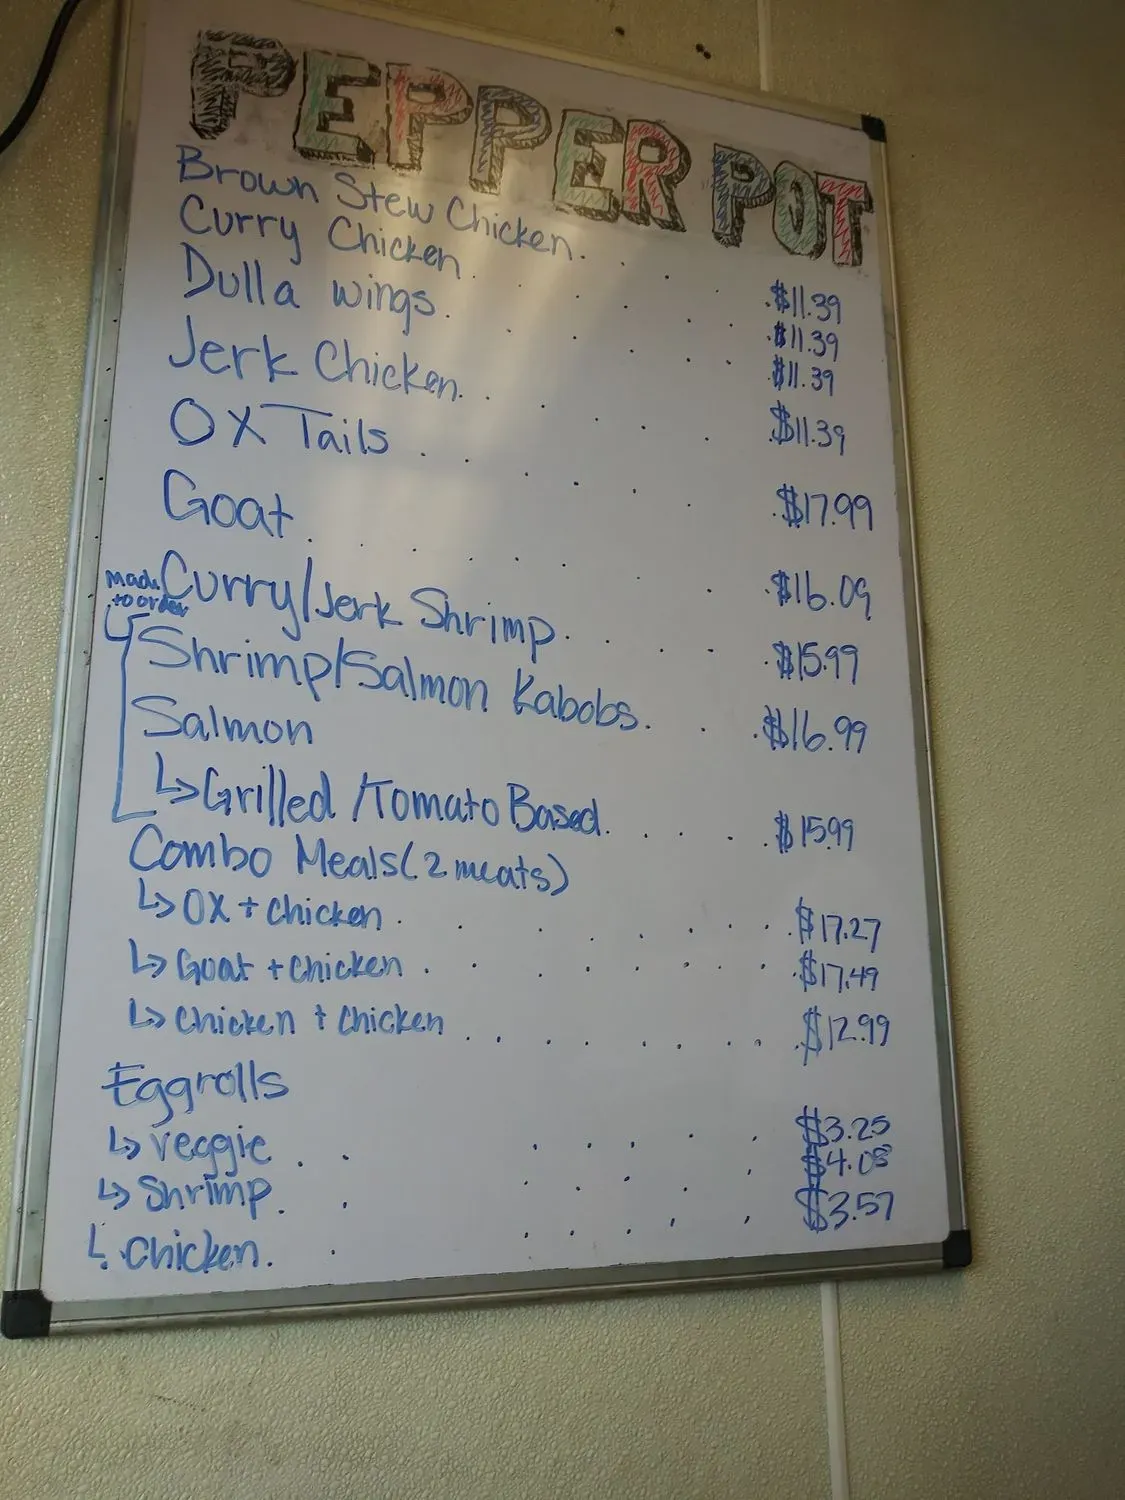 PEPPER POT
Brown Stew Chicken. . . . . $11.39
Curry Chicken. . . . . . $11.39
Dulla wings. . . . . . $11.39
Jerk Chicken. . . . . . $11.39
OX Tails . . . . . . $17.99
Goat . . . . . . . $16.09
made to order
Curry/Jerk Shrimp. . . . . $15.99
Shrimp/Salmon Kabobs. . . . $16.99
Salmon
↳ Grilled /Tomato Based. . . . . $15.99
Combo Meals (2 meats)
↳ OX + chicken . . . . . . . . $17.27
↳ Goat + chicken . . . . . . . . $17.49
↳ chicken + chicken . . . . . . . . $12.99
Eggrolls
↳ veggie . . . . . . . $3.25
↳ Shrimp. . . . . . . $4.08
↳ chicken. . . . . . . $3.57